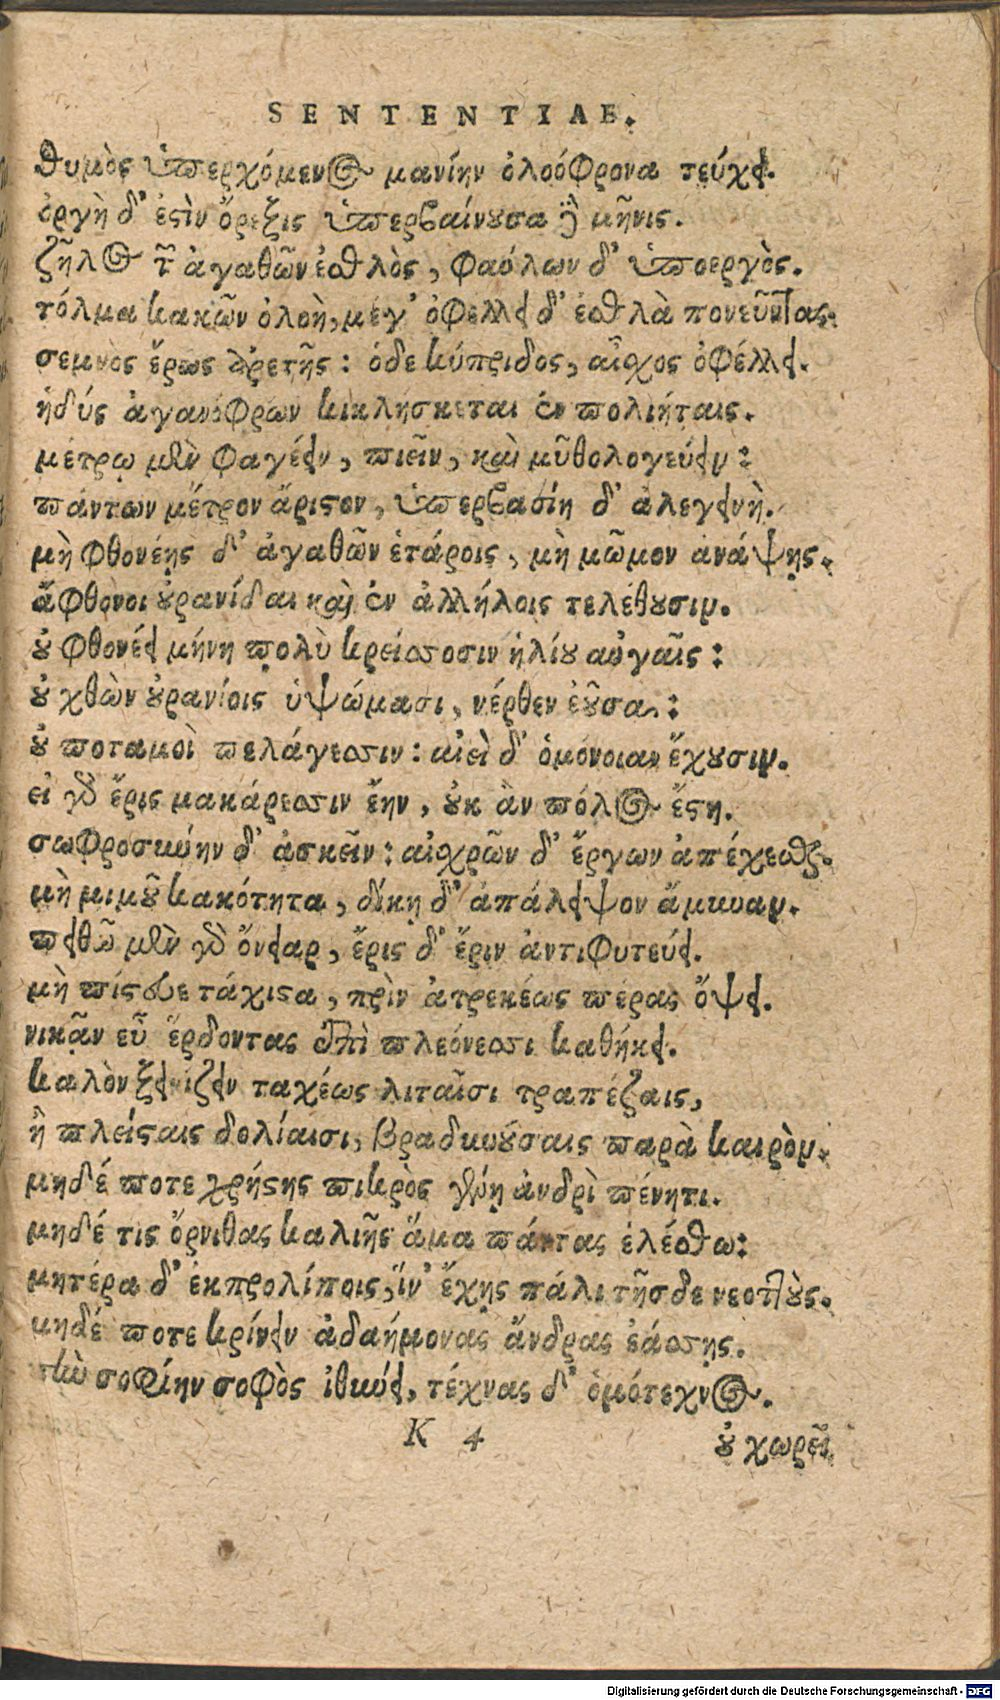 SENTENTIAE.
θυμὸς ὑπερχόμενος μανίην ὀλοόφρονα τεύχει.
ὀργὴ δ' ἐστὶν ὄρεξις ὑπερβαίνουσα δὲ μῆνις.
ζῆλος τῶν ἀγαθῶν ἐσθλὸς, φαύλων δ' ὑποεργὸς.
τόλμα κακῶν ὀλοὴ, μέγ' ὀφέλλει δ' ἐσθλὰ πονεῦντας.
σεμνὸς ἔρως ἀρετῆς: ὁδε κύπριδος, αἶχος ὀφέλλει.
ἡδύς ἀγανόφρων κικλήσκεται ἐν πολιήταις.
μέτρῳ μὲν φαγέειν, πιεῖν, καὶ μῦθολογεύειν:
πάντων μέτρον ἄριστον, ὑπερβασίη δ' ἀλεγεινὴ.
μὴ φθονέῃς δ' ἀγαθῶν ἑτάροις, μὴ μῶμον ἀνάψῃς.
ἄφθονοι οὐρανίδαι καὶ ἐν ἀλλήλοις τελέθουσιν.
οὐ φθονέει μήνη πολὺ κρείσσοσιν ἡλίου αὐγαῖς:
οὐ χθὼν οὐρανίοις ὑψώμασι, νέρθεν ἐοῦσα:
οὐ ποταμοὶ πελάγεσσιν: αἰεὶ δ' ὁμόνοιαν ἔχουσιν.
εἰ γὰρ ἔρις μακάρεσσιν ἔην, οὐκ ἂν πόλος ἔστη.
σωφροσύνην δ' ἀσκεῖν: αἰχρῶν δ' ἔργων ἀπέχεσθαι.
μὴ μιμοῦ κακότητα, δίκῃ δ' ἀπάλειψον ἄμυναν.
πειθὼ μὲν γὰρ ὄνειαρ, ἔρις δ' ἔριν ἀντιφυτεύει.
μὴ πίστευε τάχιστα, πρὶν ἀτρεκέως πέρας ὄψει.
νικᾶν εὖ ἔρδοντας ἐπὶ πλεόνεσσι καθήκει.
καλὸν ξεινίζειν ταχέως λιταῖσι τραπέζαις,
ἢ πλείσταις δολίαισι, βραδυνούσαις παρὰ καιρὸν.
μηδέ ποτε χρήστης πικρὸς γένῃ ἀνδρὶ πένητι.
μηδέ τις ὄρνιθας καλιῆς ἅμα πάντας ἑλέσθω:
μητέρα δ' ἐκπρολίποις, ἵν' ἔχῃς πάλι τῆσδε νεοττοὺς.
μηδέ ποτε κρίνειν ἀδαήμονας ἄνδρας ἐάσσῃς.
τὴν σοφίην σοφὸς ἰθύνει, τέχνας δ' ὁμότεχνος.
K 4
οὐ χωρεῖ
Digitalisierung gefördert durch die Deutsche Forschungsgemeinschaft - DFG